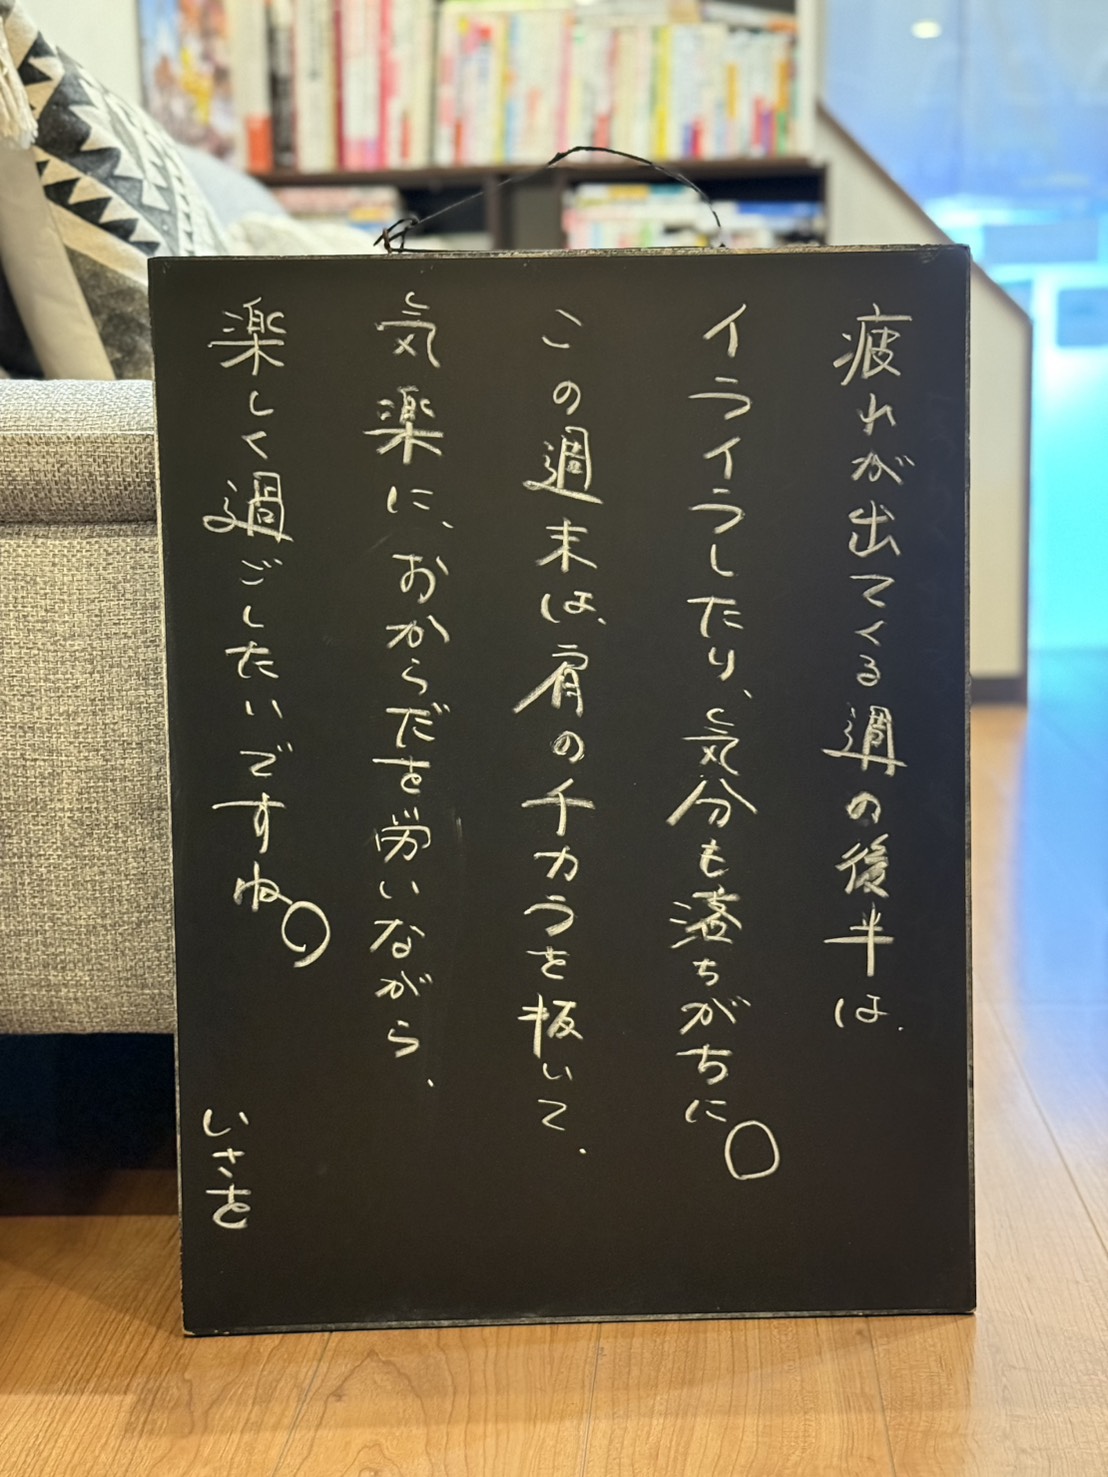 疲れが出てくる週の後半は、
イライラしたり、気分も落ちがちに。
この週末は、肩のチカラを抜いて、
気楽に、おからだを労いながら、
楽しく過ごしたいですね。
いさを